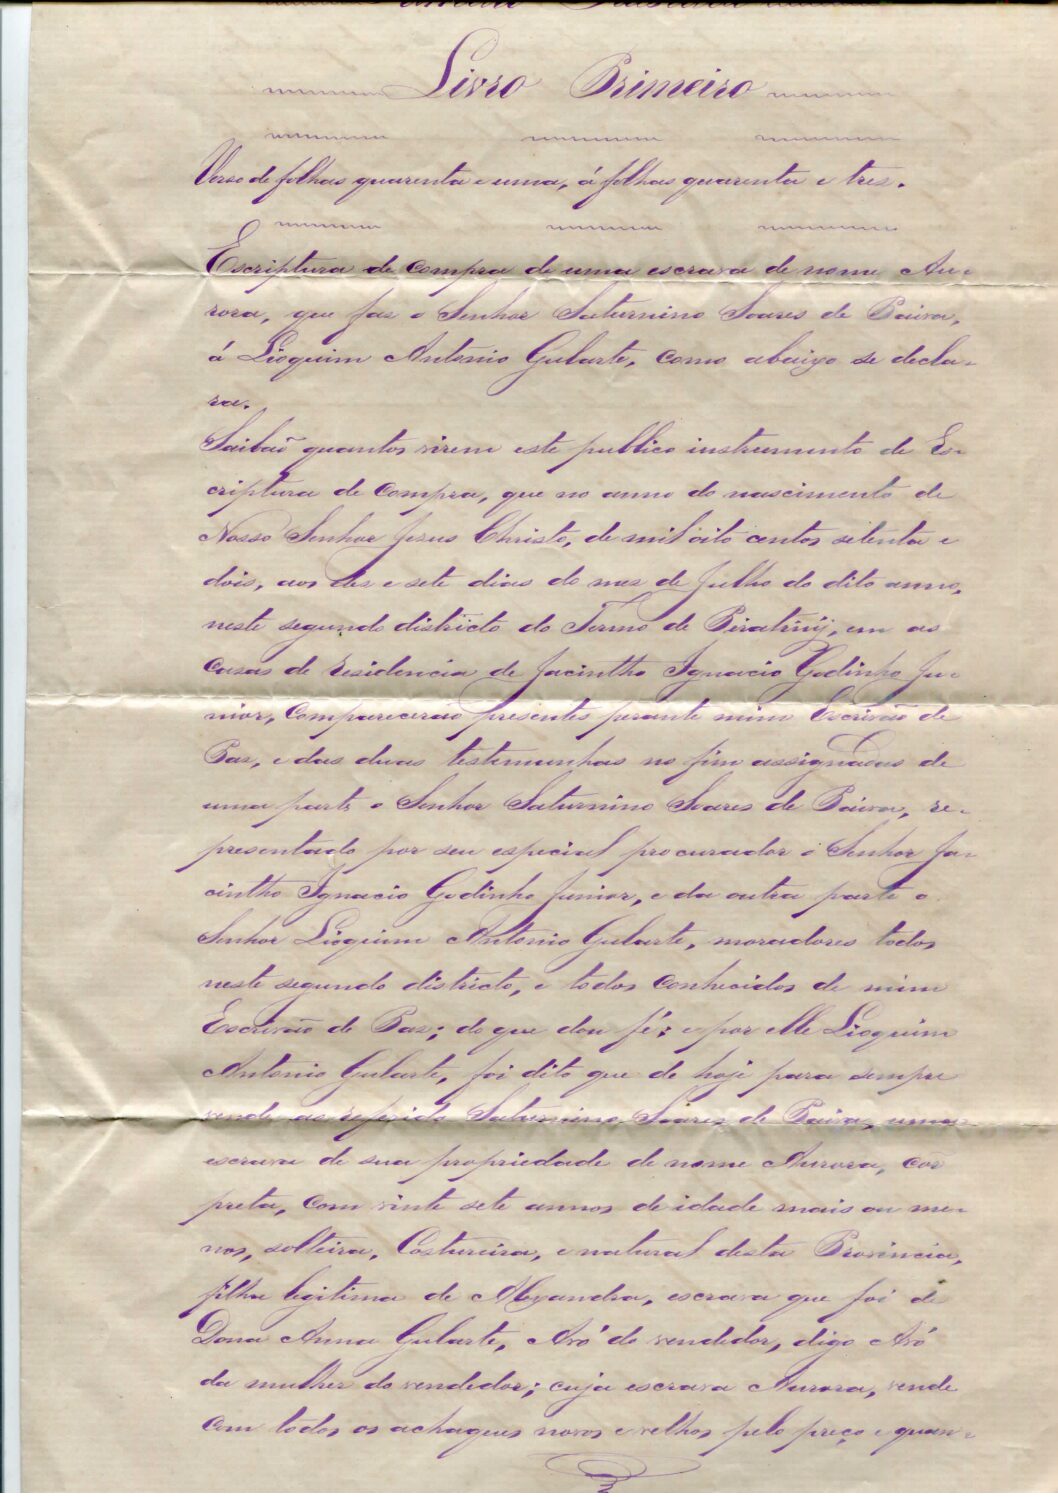 Livro Primeiro
Verso de folhas quarenta e uma, á folhas quarenta e tres.
Escriptura de compra de uma escrava de nome Au-
rora, que faz o Senhor Saturnino Soares de Paiva,
á Lioquim Antonio Gularte, como abaixo se decla-
ra.
Saibaõ quantos virem este publico instrumento de Es-
criptura de Compra, que no anno do nascimento de
Nosso Senhor Jesus Christo, de mil oito centos setenta e
dois, aos dez e sete dias do mez de Julho do dito anno,
neste segundo districto do Termo de Piratinÿ, em as
casas de residencia de Jacintho Ignacio Godinho Ju-
nior, Comparecerão presentes perante mim Escrivão de
Paz, e das duas testemunhas no fim assignadas de
uma parte o Senhor Saturnino Soares de Paiva, re-
presentado por seu especial procurador o Senhor Ja-
cintho Ignacio Godinho Junior, e da outra parte o
Senhor Lioquim Antonio Gularte, moradores todos
neste segundo districto, e todos conhecidos de mim
Escrivão de Paz; do que dou fé; e por elle Lioquim
Antonio Gularte, foi dito que de hoje para sempre
vende ao referido Saturnino Soares de Paiva, uma
escrava de sua propriedade de nome Aurora, cor
preta, com vinte sete annos de idade mais ou me-
nos, solteira, Costureira, e natural desta Provincia,
filha legitima de Alexandra, escrava que foi de
Dona Anna Gularte, Avó do vendedor, digo Avó
da mulher do vendedor; cuja escrava Aurora, vende
com todos os achaques novos e velhos pelo preço e quan-